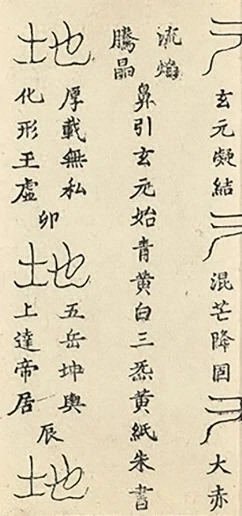 玄元凝結
混芒降
大赤
流焰
騰晶
鼻引玄元始青黃白三炁黃紙朱書
土地
厚載無私
化形王虛
卯
土地
五岳坤輿
上達帝居
辰
土地